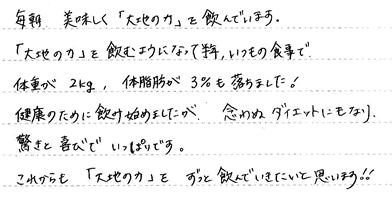 毎朝 美味しく「大地の力」を飲んでいます。
「大地の力」を飲むようになって半年、いつもの食事で
体重が 2kg, 体脂肪が 3%も落ちました!
健康のために飲み始めましたが 念わぬダイエットにもなり、
驚きと喜びでいっぱいです。
これからも「大地の力を ずっと飲んでいきたいと思います!!